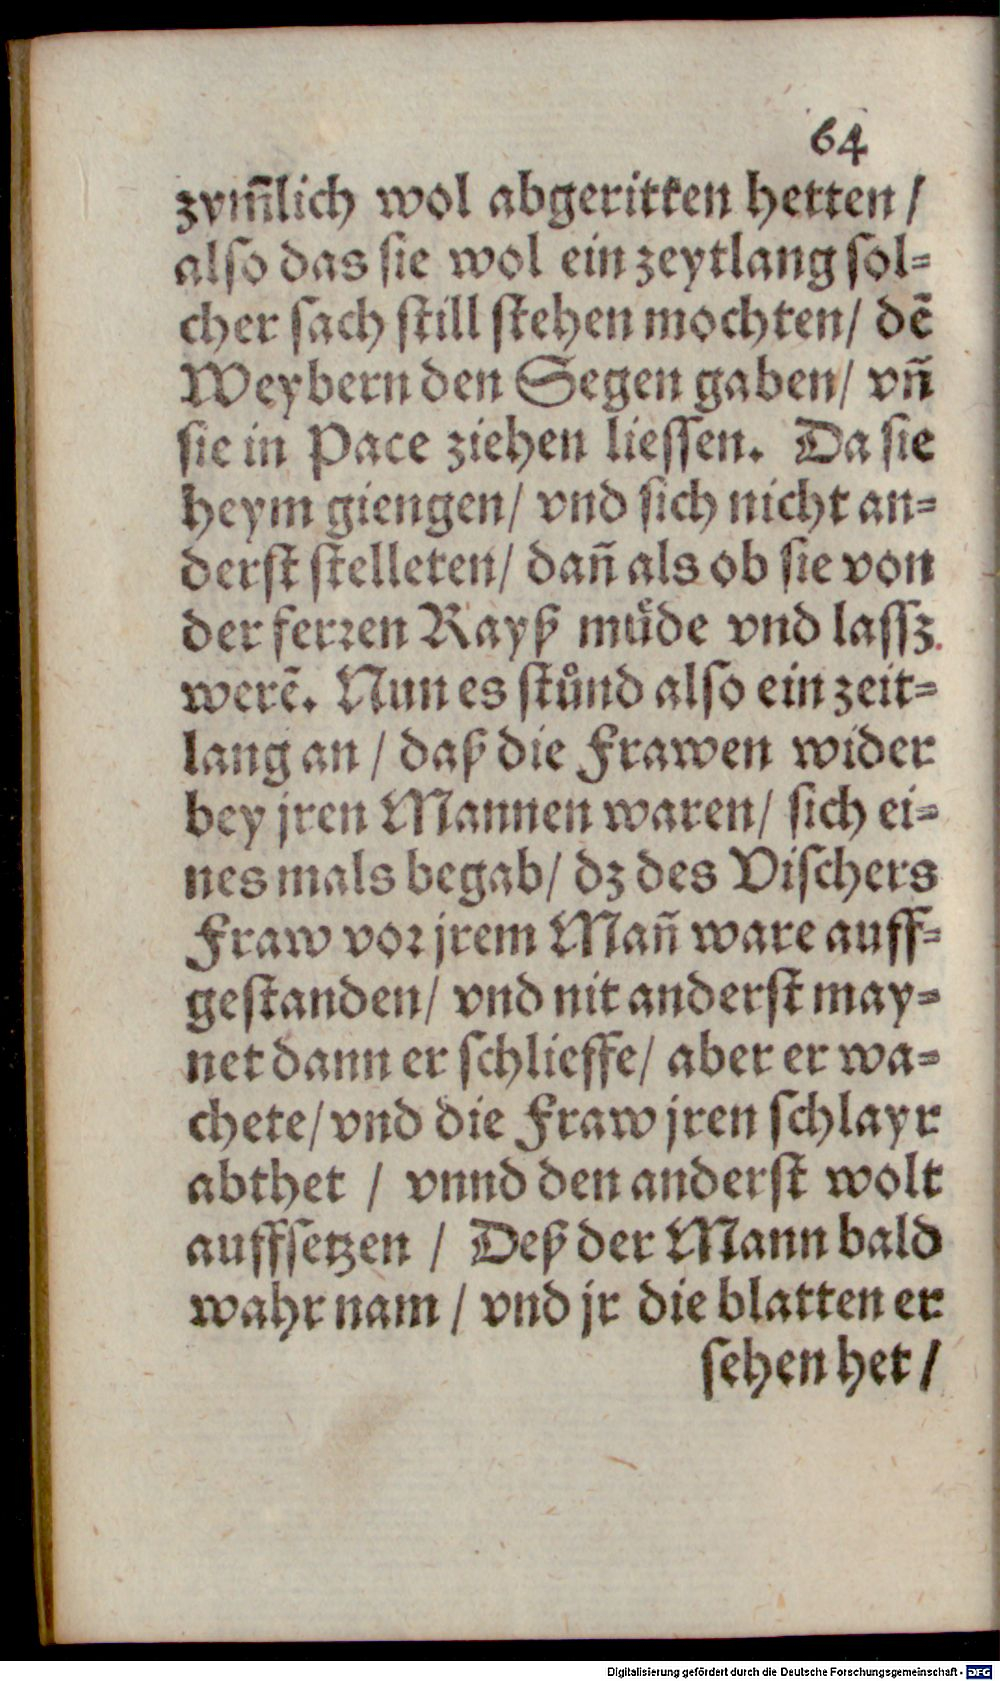 64
zym̃lich wol abgeritten hetten /
also das sie wol ein zeytlang sol=
cher sach still stehen mochten / dẽ
Weybern den Segen gaben / vñ
sie in Pace ziehen liessen. Da sie
heym giengen / vnd sich nicht an=
derst stelleten / dañ als ob sie von
der ferren Rayß muͤde vnd lassz
werẽ. Nun es stůnd also ein zeit=
lang an / daß die Frawen wider
bey jren Mannen waren / sich ei=
nes mals begab / dz des Vischers
Fraw vor jrem Mañ ware auff=
gestanden / vnd nit anderst may=
net dann er schlieffe / aber er wa=
chete / vnd die Fraw jren schlayr
abthet / vnnd den anderst wolt
auffsetzen / Deß der Mann bald
wahr nam / vnd jr die blatten er
sehen het /
Digitalisierung gefördert durch die Deutsche Forschungsgemeinschaft - DFG